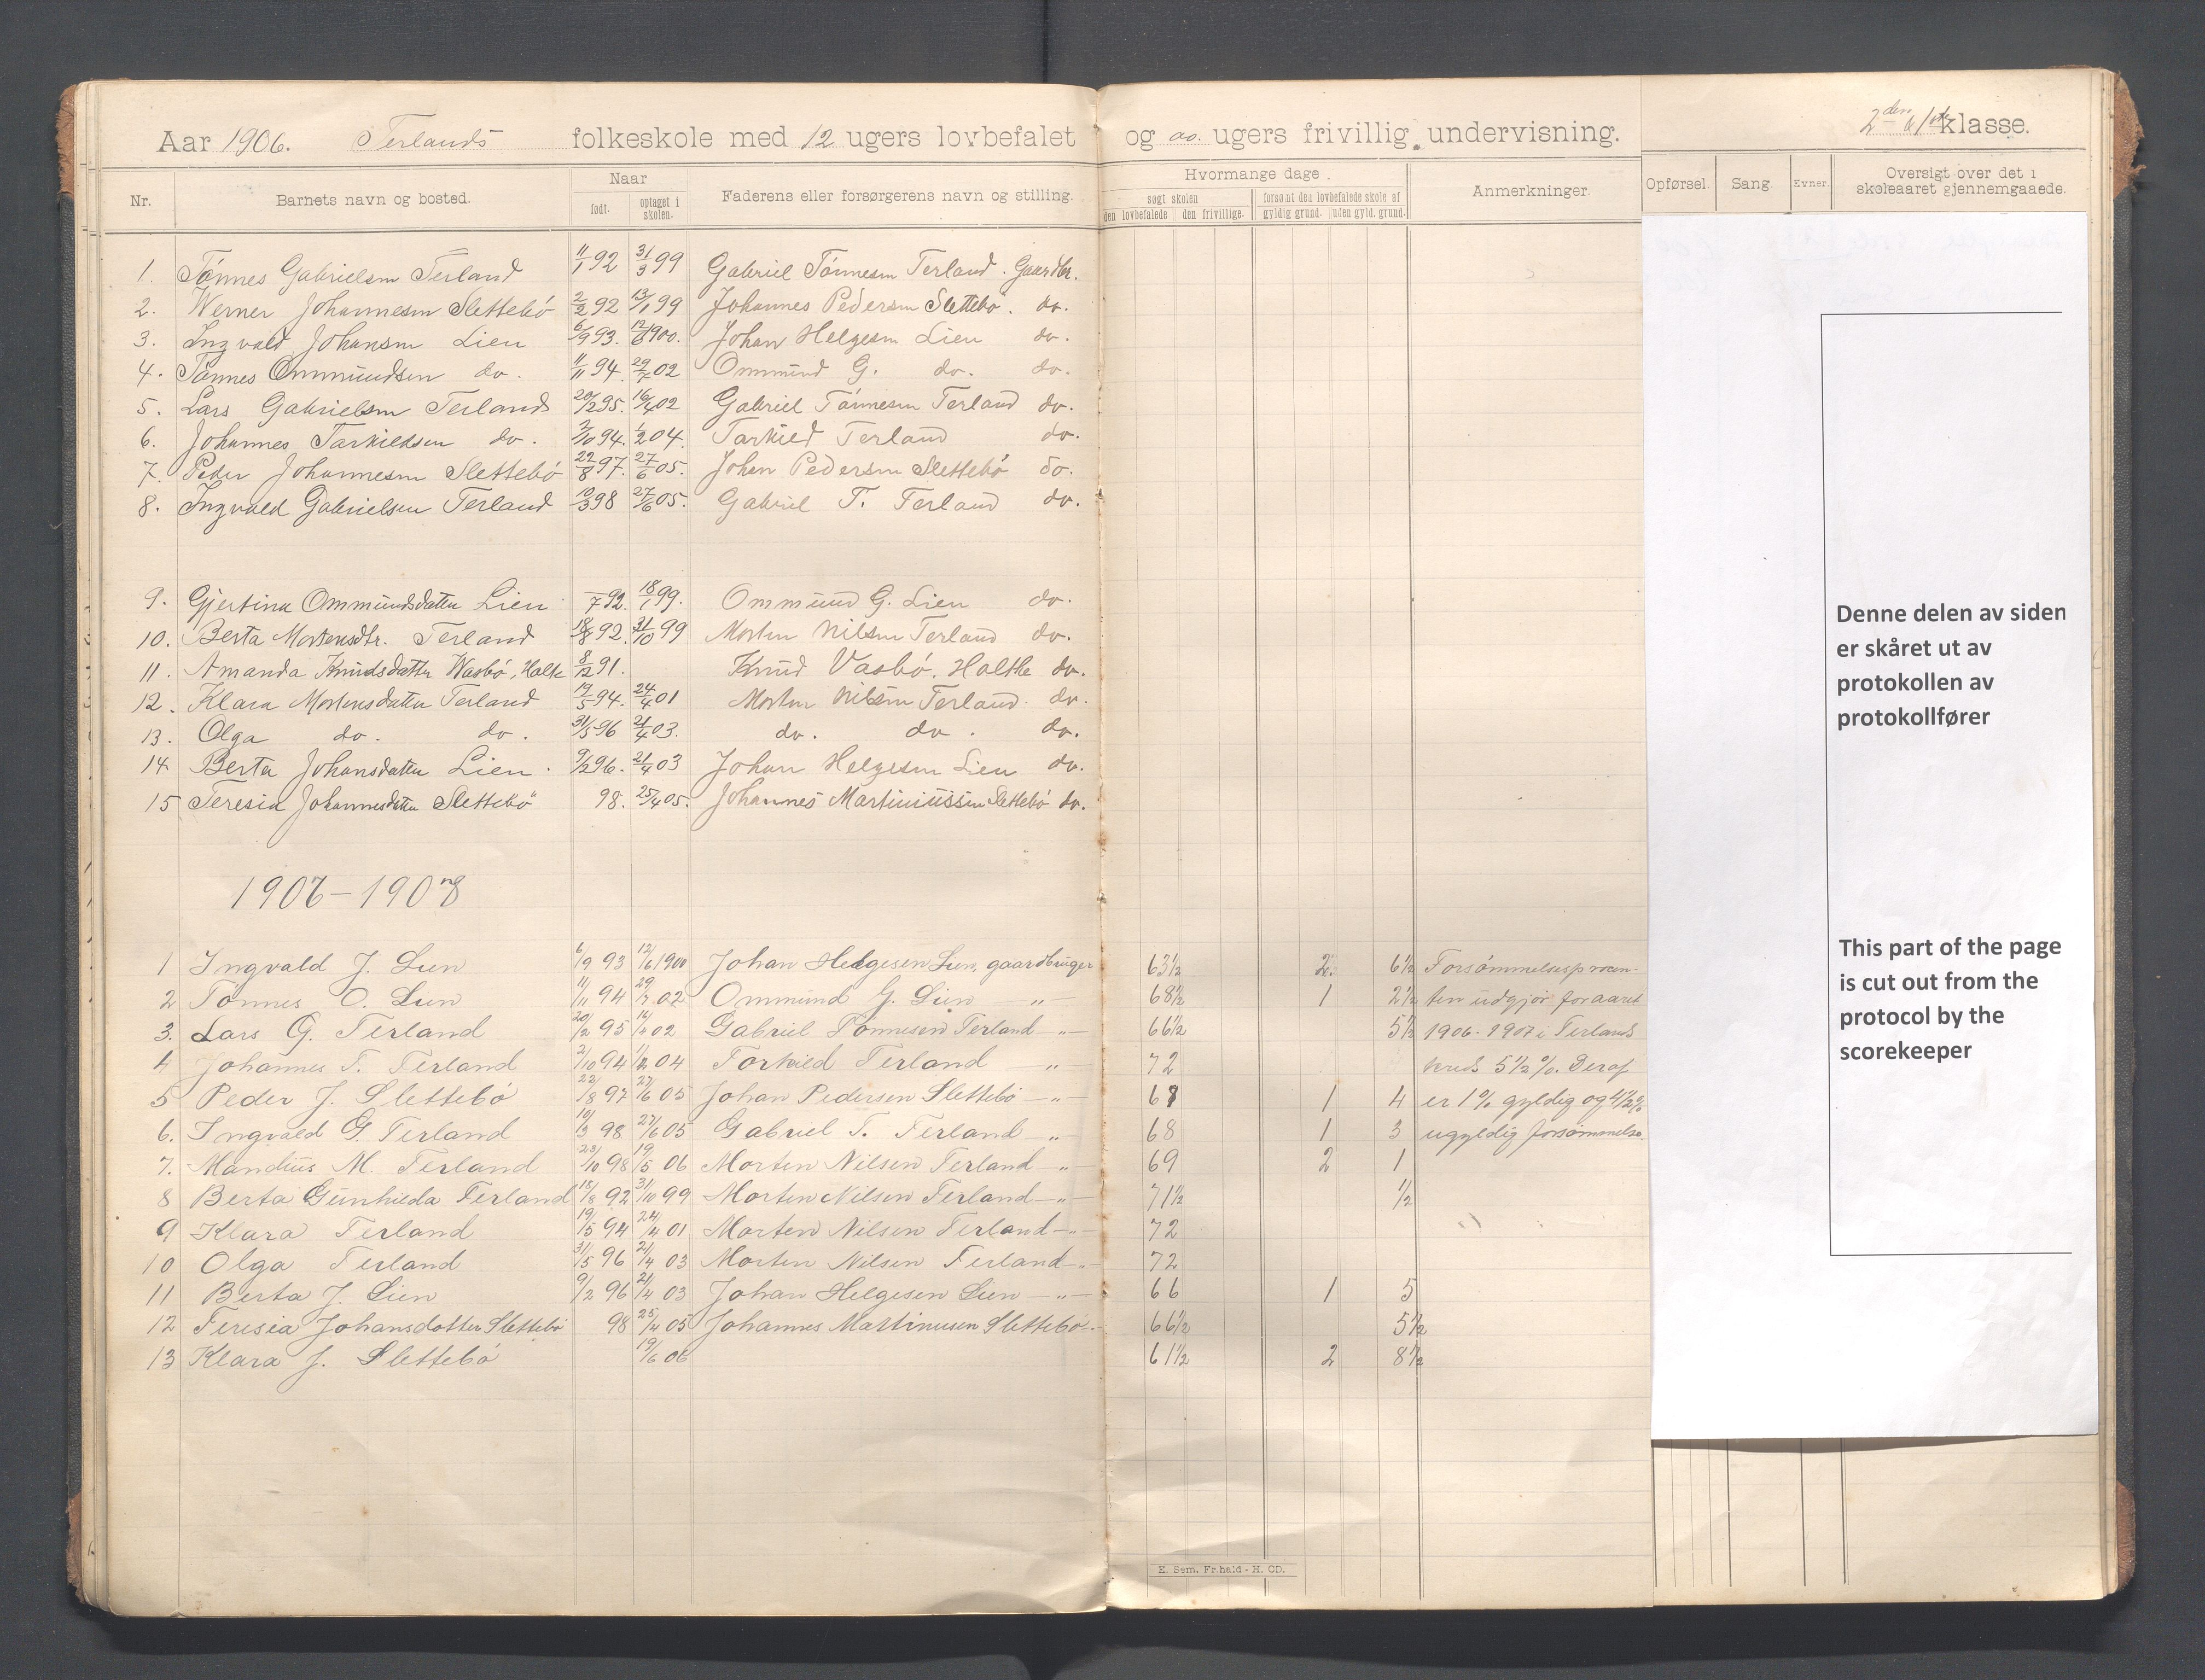 Aar 1906. Terlands folkeskole med 12 ugers lovbefalet og oo. ugers frivillig undervisning. 2den klasse.
Nr. Barnets navn og bosted. Naar født. optaget i skolen. Faderens eller forsørgerens navn og stilling. Hvormange dage søgt skolen den lovbefalede den frivillige. forsømt den lovbefalede skole af gyldig grund. uden gyld. grund. Anmerkninger. Opførsel. Sang. Evner. Oversigt over det i skoleaaret gjennemgaaede.
1. Tönnes Gabrielsen Terland 11/1 92 31/3 99 Gabriel Tönnesen Terland. Gaardbr.
2. Werner Johannesen Slettebö 2/2 92 13/1 99 Johannes Pedersen Slettebö. do.
3. Ingvald Johansen Lien 6/9 93. 12/6 1900. Johan Helgesen Lien do.
4. Tönnes Ommundsen do. 11/11 94. 29/7 02 Ommund G. do. do.
5. Lars Gabrielsen Terland 20/2 95. 16/4 02 Gabriel Tönnesen Terland do.
6. Johannes Tarkieldsen do. 2/10 94. 1/2 04. Tarkield Terland do.
7. Peder Johannesen Slettebö 22/8 97. 27/6 05. Johan Pedersen Slettebö do.
8. Ingvald Gabrielsen Terland 10/3 98 27/6 05. Gabriel T. Terland do.
9. Gjertina Ommundsdatter Lien 7 92. 18/1 99. Ommund G. Lien do.
10. Berta Mortensdtr. Terland 18/8 92. 31/10 99 Morten Nilsen Terland do.
11. Amanda Knudsdatter Wasbö, Halte 8/12 91. Knud Vasbö, Halthe do.
12. Klara Mortensdatter Terland 19/5 94. 24/4 01 Morten Nilsen Terland do.
13. Olga do. do. 31/5 96 21/4 03. do. do. do.
14. Berta Johansdatter Lien 9/2 96. 21/4 03 Johan Helgesen Lien do.
15 Teresia Johannesdatter Slettebö 98. 25/4 05. Johannes Martiniussen Slettebö do.
1 Ingvald J. Lien 6/9 93 12/6 1900 Johan Helgesen Lien, gaardbruger 63½ 2 6½ Forsømmelsesprocen-
2 Tönnes O. Lien 11/11 94 29/7 02 Ommund G. Lien —„— 68½ 1 2½ ten udgjör for aaret
3. Lars G. Terland 20/2 95 16/4 02 Gabriel Tönnesen Terland —„— 66½ 5½ 1906-1907 i Terlands
4 Johannes T. Terland 2/10 94 1/2 04 Torkield Terland „ 72 kreds 5½ %. Deraf
5 Peder J. Slettebö 22/8 97 27/6 05 Johan Pedersen Slettebö —„— 67 1 4 er 1 % gyldig og 4½ %
6. Ingvald G. Terland 10/3 98 27/6 05 Gabriel T. Terland —„— 68 1 3 ugyldig forsømmelse.
7. Mandius M. Terland 23/10 98 19/5 06 Morten Nilsen Terland —„— 69 2 1
8 Berta Gunhilda Terland 18/8 92 31/10 99 Morten Nilsen Terland —„— 71½ ½
9 Klara Terland 19/5 94 24/4 01 Morten Nilsen Terland —„— 72
10 Olga Terland 31/5 96 21/4 03 Morten Nilsen Terland —„— 72
11 Berta J. Lien 9/2 96 21/4 03 Johan Helgesen Lien —„— 66 1 5
12 Teresia Johansdotter Slettebö 98 25/4 05 Johannes Martinusen Slettebö —„— 66½ 5½
13 Klara J. Slettebö 19/6 06 61½ 2 8½
E. Sem. Fr.hald - H. CD.
Denne delen av siden
er skåret ut av
protokollen av
protokollfører
This part of the page
is cut out from the
protocol by the
scorekeeper